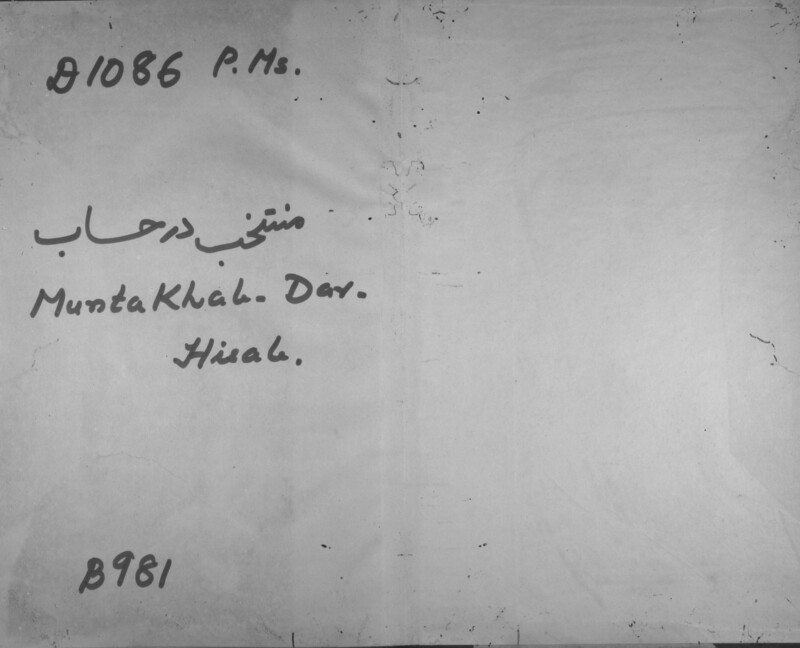 D1086 P.Ms.
منتخب در حساب
Muntakhab. Dar.
Hisab.
B981